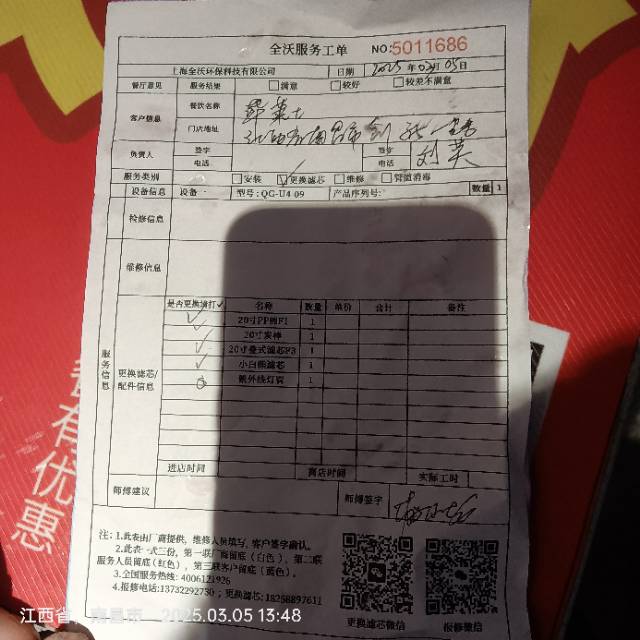 全沃服务工单 NO:5011686
上海全沃环保科技有限公司 日期 2025年03月05日
餐厅意见 服务结果 满意 较好 较差不满意
客户信息 餐饮名称
门店地址
负责人 签字 签字
电话 电话
服务类别 安装 更换滤芯 维修 管道消毒
设备信息 设备 型号:QG-U4-09 产品序列号: 数量 1
检修信息
维修信息
服务信息
更换滤芯/配件信息
是否更换请打✓ 名称 数量 单价 合计 备注
✓ 20寸PP棉F1 1
✓ 20寸炭棒 1
✓ 20寸叠式滤芯F3 1
✓ 小白熊滤芯 1
紫外线灯管 1
进店时间 离店时间 实际工时
师傅建议 师傅签字
注:1.此表由厂商提供,维修人员填写,客户签字确认。
2.此表一式三份,第一联厂商留底(白色),第二联
服务人员留底(红色),第三联客户留底(蓝色)。
3.全国服务热线:4006121926
4.报修电话:13732292730;更换滤芯:18258897611
更换滤芯微信 报修微信
有优惠
江西省,南昌市 2025.03.05 13:48